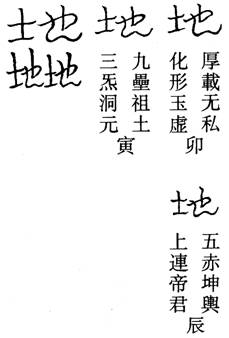 地
厚載无私
化形玉虛
卯
地
五赤坤輿
上連帝君
辰
地
九壘祖土
三炁洞元
寅
地
地地